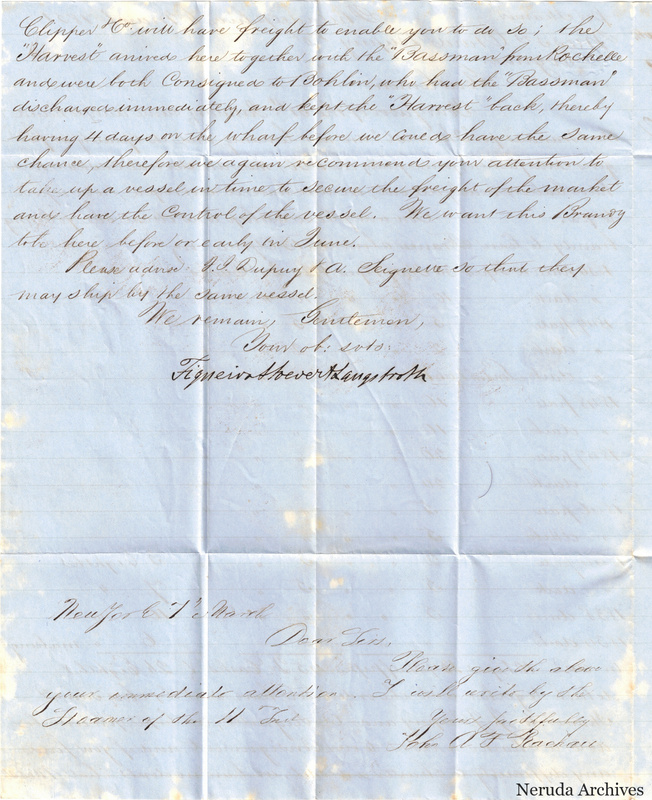 Clipper & Co. will have freight to enable you to do so; the
"Harvest" arrived here together with the "Bassman" from Rochelle
and were both Consigned to Bohlin, who had the "Bassman"
discharged immediately, and kept the "Harvest" back, thereby
having 4 days on the wharf before we could have the same
chance, therefore we again recommend your attention to
take up a vessel in time to secure the freight of the market
and have the control of the vessel. We want this Brandy
to be here before or early in June.
Please advise J. J. Dupuy & A. Seignette so that they
may ship by the same vessel.
We remain, Gentlemen,
Your ob: svts:
Figueira Langstroth
New York March
Dear Sirs,
Please give the above
your immediate attention. I will write by the
Steamer of the 11
Yours faithfully
John A
Neruda Archives